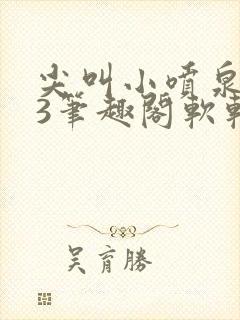 尖叫小噴泉
3筆趣閣軟
吳育勝